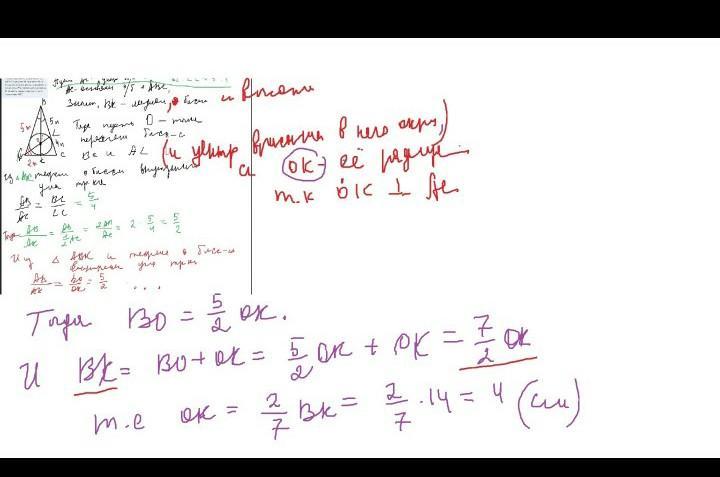 AC - основании р/б △ ABC,
Значит, BK - медиана, бисс и высота
Тогда пусть O - точка
пересечен бисс-с
BK и AL
(и центр вписанной в него окруж,)
а OK - её радиус.
т.к OK ⊥ AC
B
5n
L
4n
C
Из △ ABC теореме о биссек внутреннего
угла тр-ка
AB/AC = BL/LC = 5/4
Тогда AB/AK = AB/(1/2 AC) = 2AB/AC = 2 · 5/4 = 5/2
Из △ ABK и теореме о бисс-се
внутреннем угла треуг
AB/AK = BO/OK = 5/2 . . .
Тогда BO = 5/2 OK.
И BK = BO + OK = 5/2 OK + OK = 7/2 OK
т.е OK = 2/7 BK = 2/7 · 14 = 4 (см)